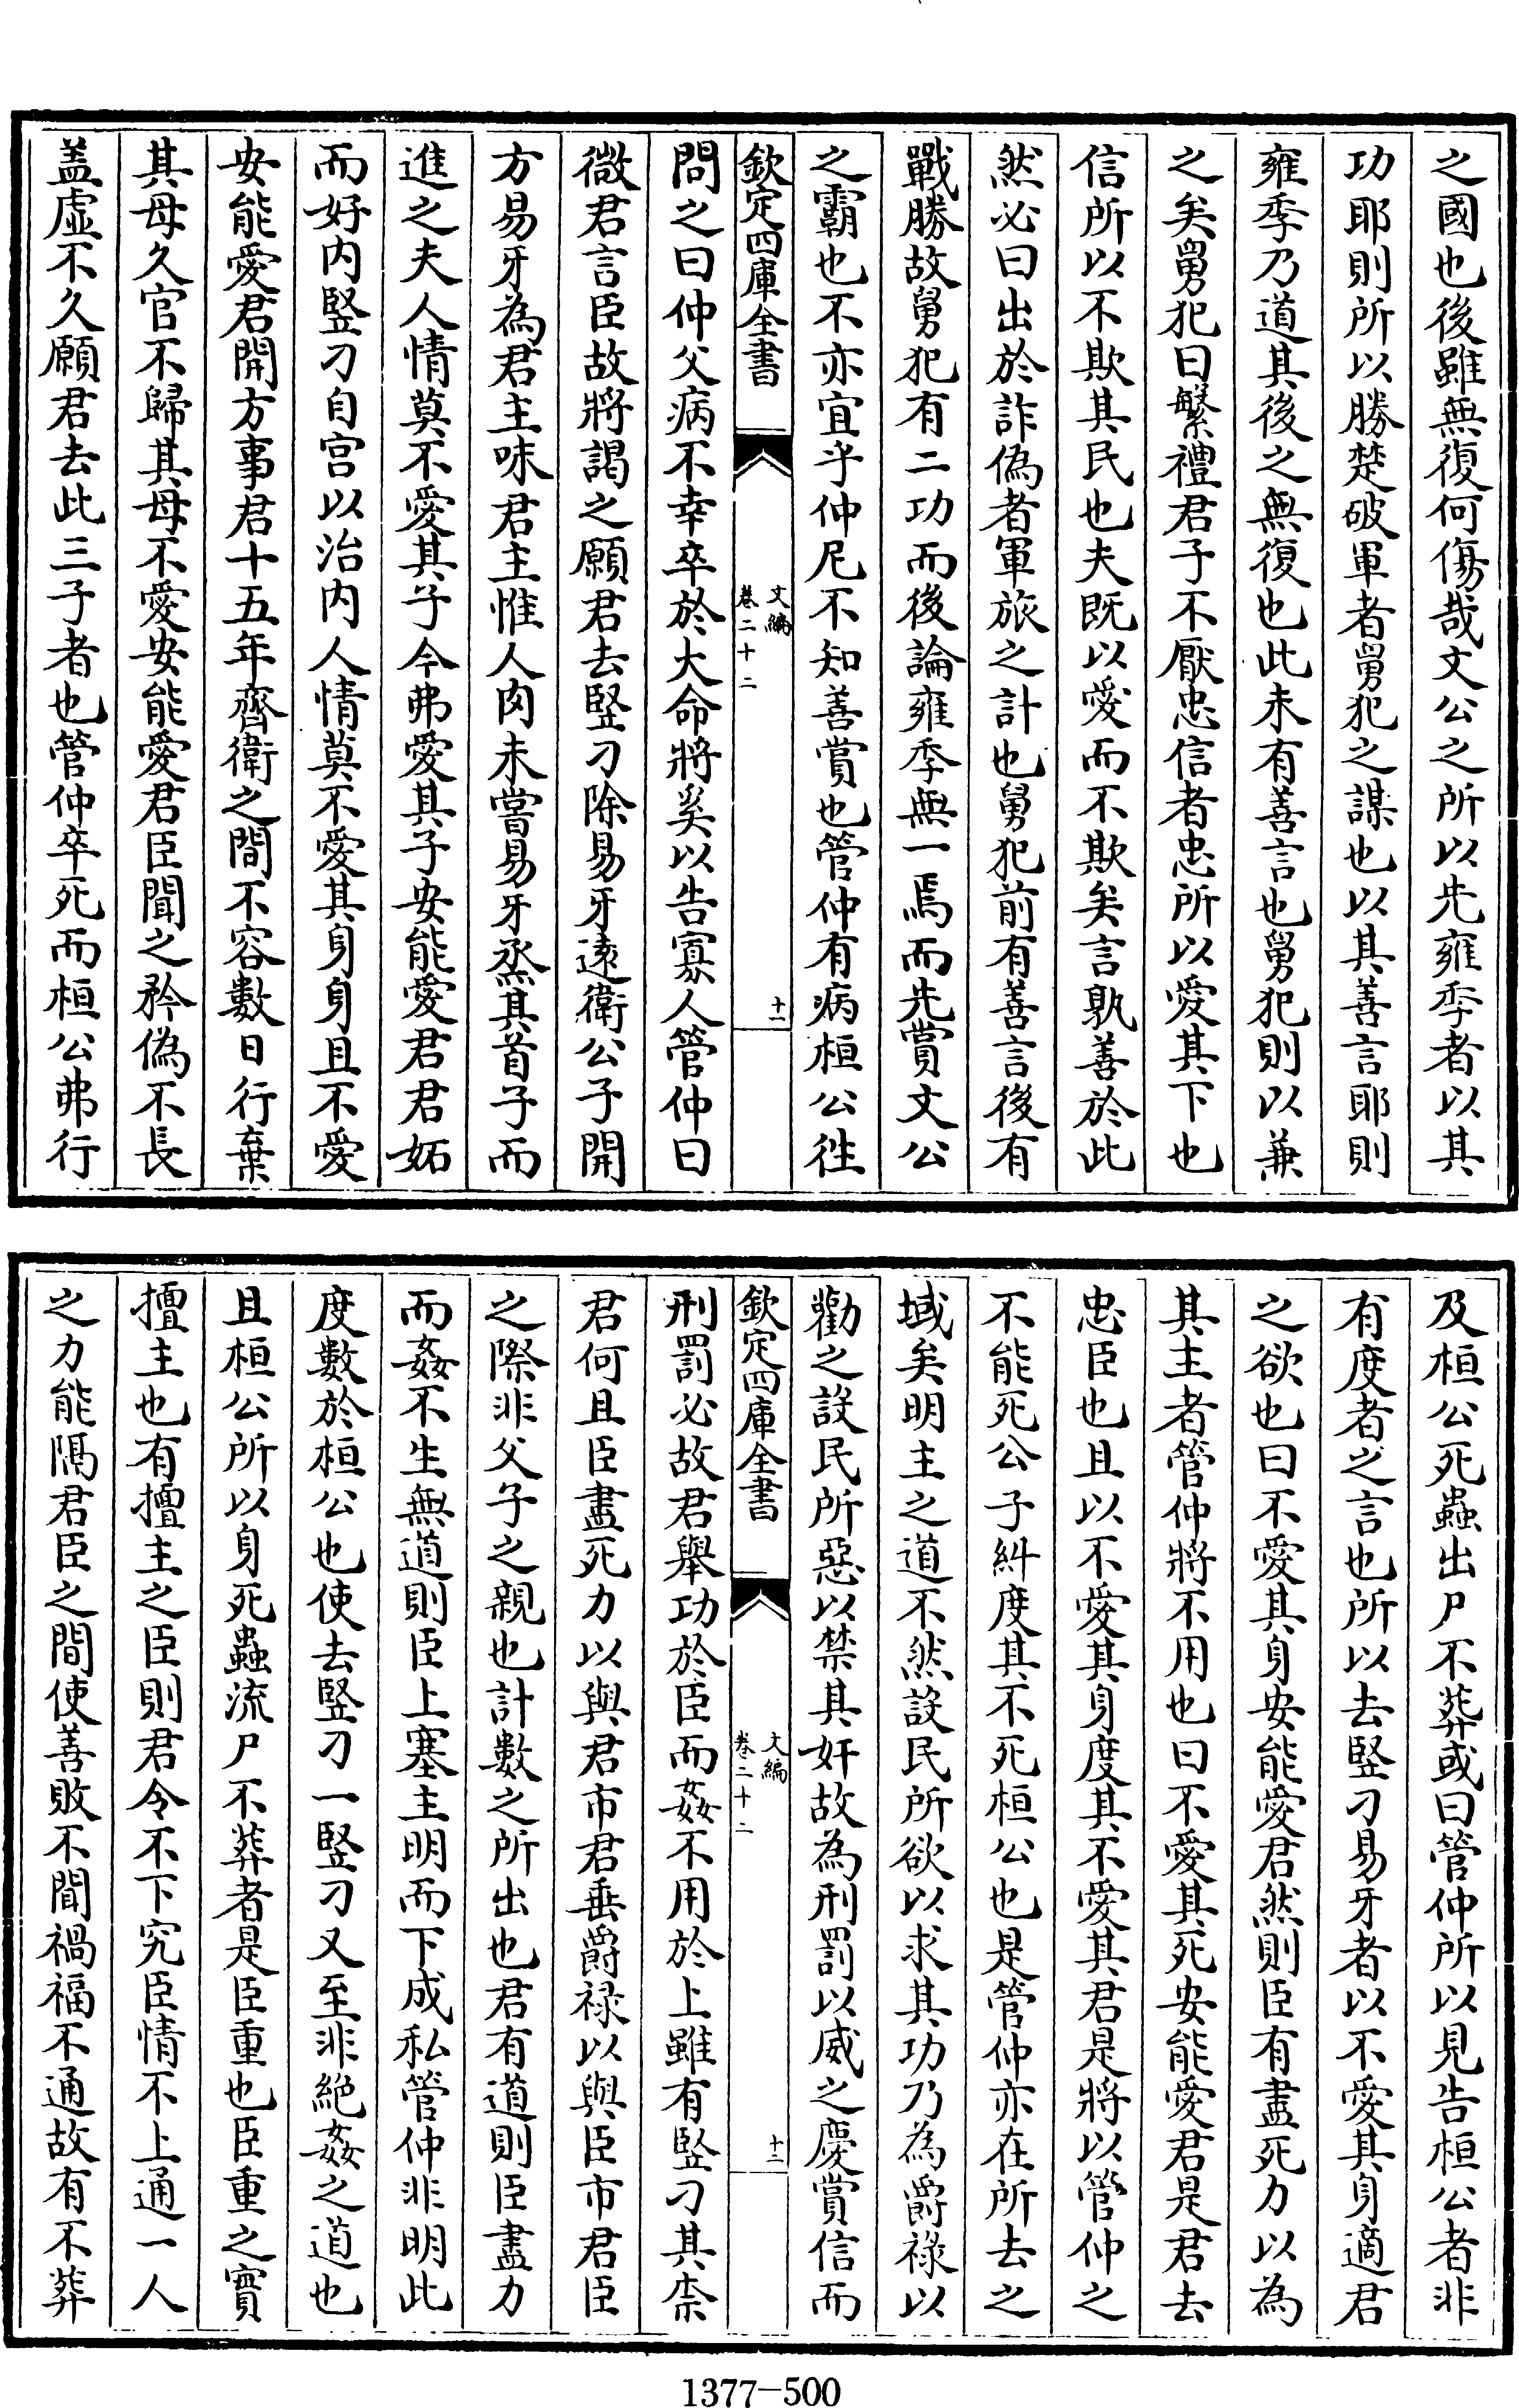 之國也後雖無復何傷哉文公之所以先雍季者以其
功耶則所以勝楚破軍者舅犯之謀也以其善言耶則
雍季乃道其後之無復也此未有善言也舅犯則以兼
之矣舅犯曰繁禮君子不厭忠信者忠所以愛其下也
信所以不欺其民也夫既以愛而不欺矣言孰善於此
然必曰出於詐偽者軍旅之計也舅犯前有善言後有
戰勝故舅犯有二功而後論雍季無一焉而先賞文公
之霸也不亦宜乎仲尼不知善賞也管仲有病桓公徃
欽定四庫全書
文編
卷二十二
十一
問之曰仲父病不幸卒於大命將奚以告寡人管仲曰
微君言臣故將謁之願君去竪刁除易牙遠衛公子開
方易牙為君主味君主惟人肉未嘗易牙烝其首子而
進之夫人情莫不愛其子今弗愛其子安能愛君君妬
而好内竪刁自宫以治内人情莫不愛其身身且不愛
安能愛君開方事君十五年齊衛之間不容數日行棄
其母久官不歸其母不愛安能愛君臣聞之矜偽不長
盖虚不久願君去此三子者也管仲卒死而桓公弗行
及桓公死蟲出尸不葬或曰管仲所以見告桓公者非
有度者之言也所以去竪刁易牙者以不愛其身適君
之欲也曰不愛其身安能愛君然則臣有盡死力以為
其主者管仲將不用也曰不愛其死安能愛君是君去
忠臣也且以不愛其身度其不愛其君是將以管仲之
不能死公子糾度其不死桓公也是管仲亦在所去之
域矣明主之道不然設民所欲以求其功乃為爵祿以
勸之設民所惡以禁其奸故為刑罰以威之慶賞信而
欽定四庫全書
文編
卷二十二
十二
刑罰必故君舉功於臣而姦不用於上雖有竪刁其柰
君何且臣盡死力以與君市君垂爵祿以與臣市君臣
之際非父子之親也計數之所出也君有道則臣盡力
而姦不生無道則臣上塞主明而下成私管仲非明此
度數於桓公也使去竪刁一竪刁又至非絕姦之道也
且桓公所以身死蟲流尸不葬者是臣重也臣重之實
擅主也有擅主之臣則君令不下究臣情不上通一人
之力能隔君臣之間使善敗不聞禍福不通故有不葬
1377-500